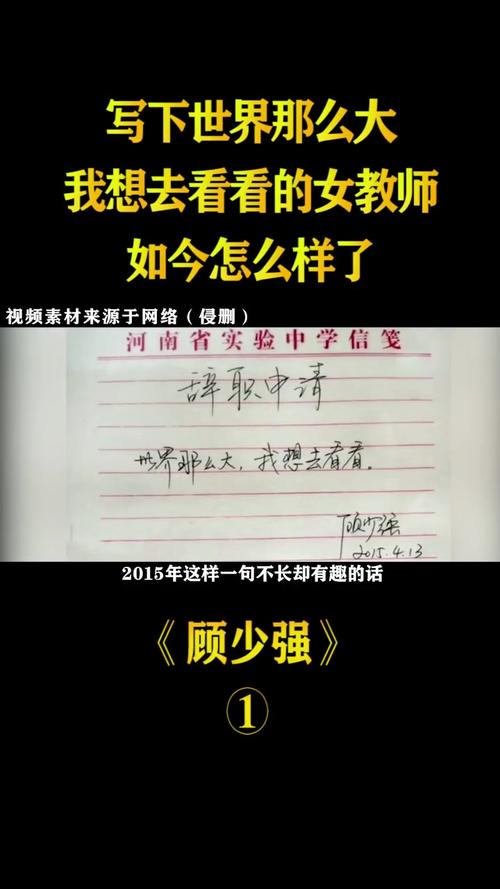 写下世界那么大
我想去看看的女教师
如今怎么样了
视频素材来源于网络（侵删）
河南省实验中学信笺
辞职申请
世界那么大，我想去看看。
顾少强
2015.4.13
2015年这样一句不长却有趣的话
《顾少强》
①